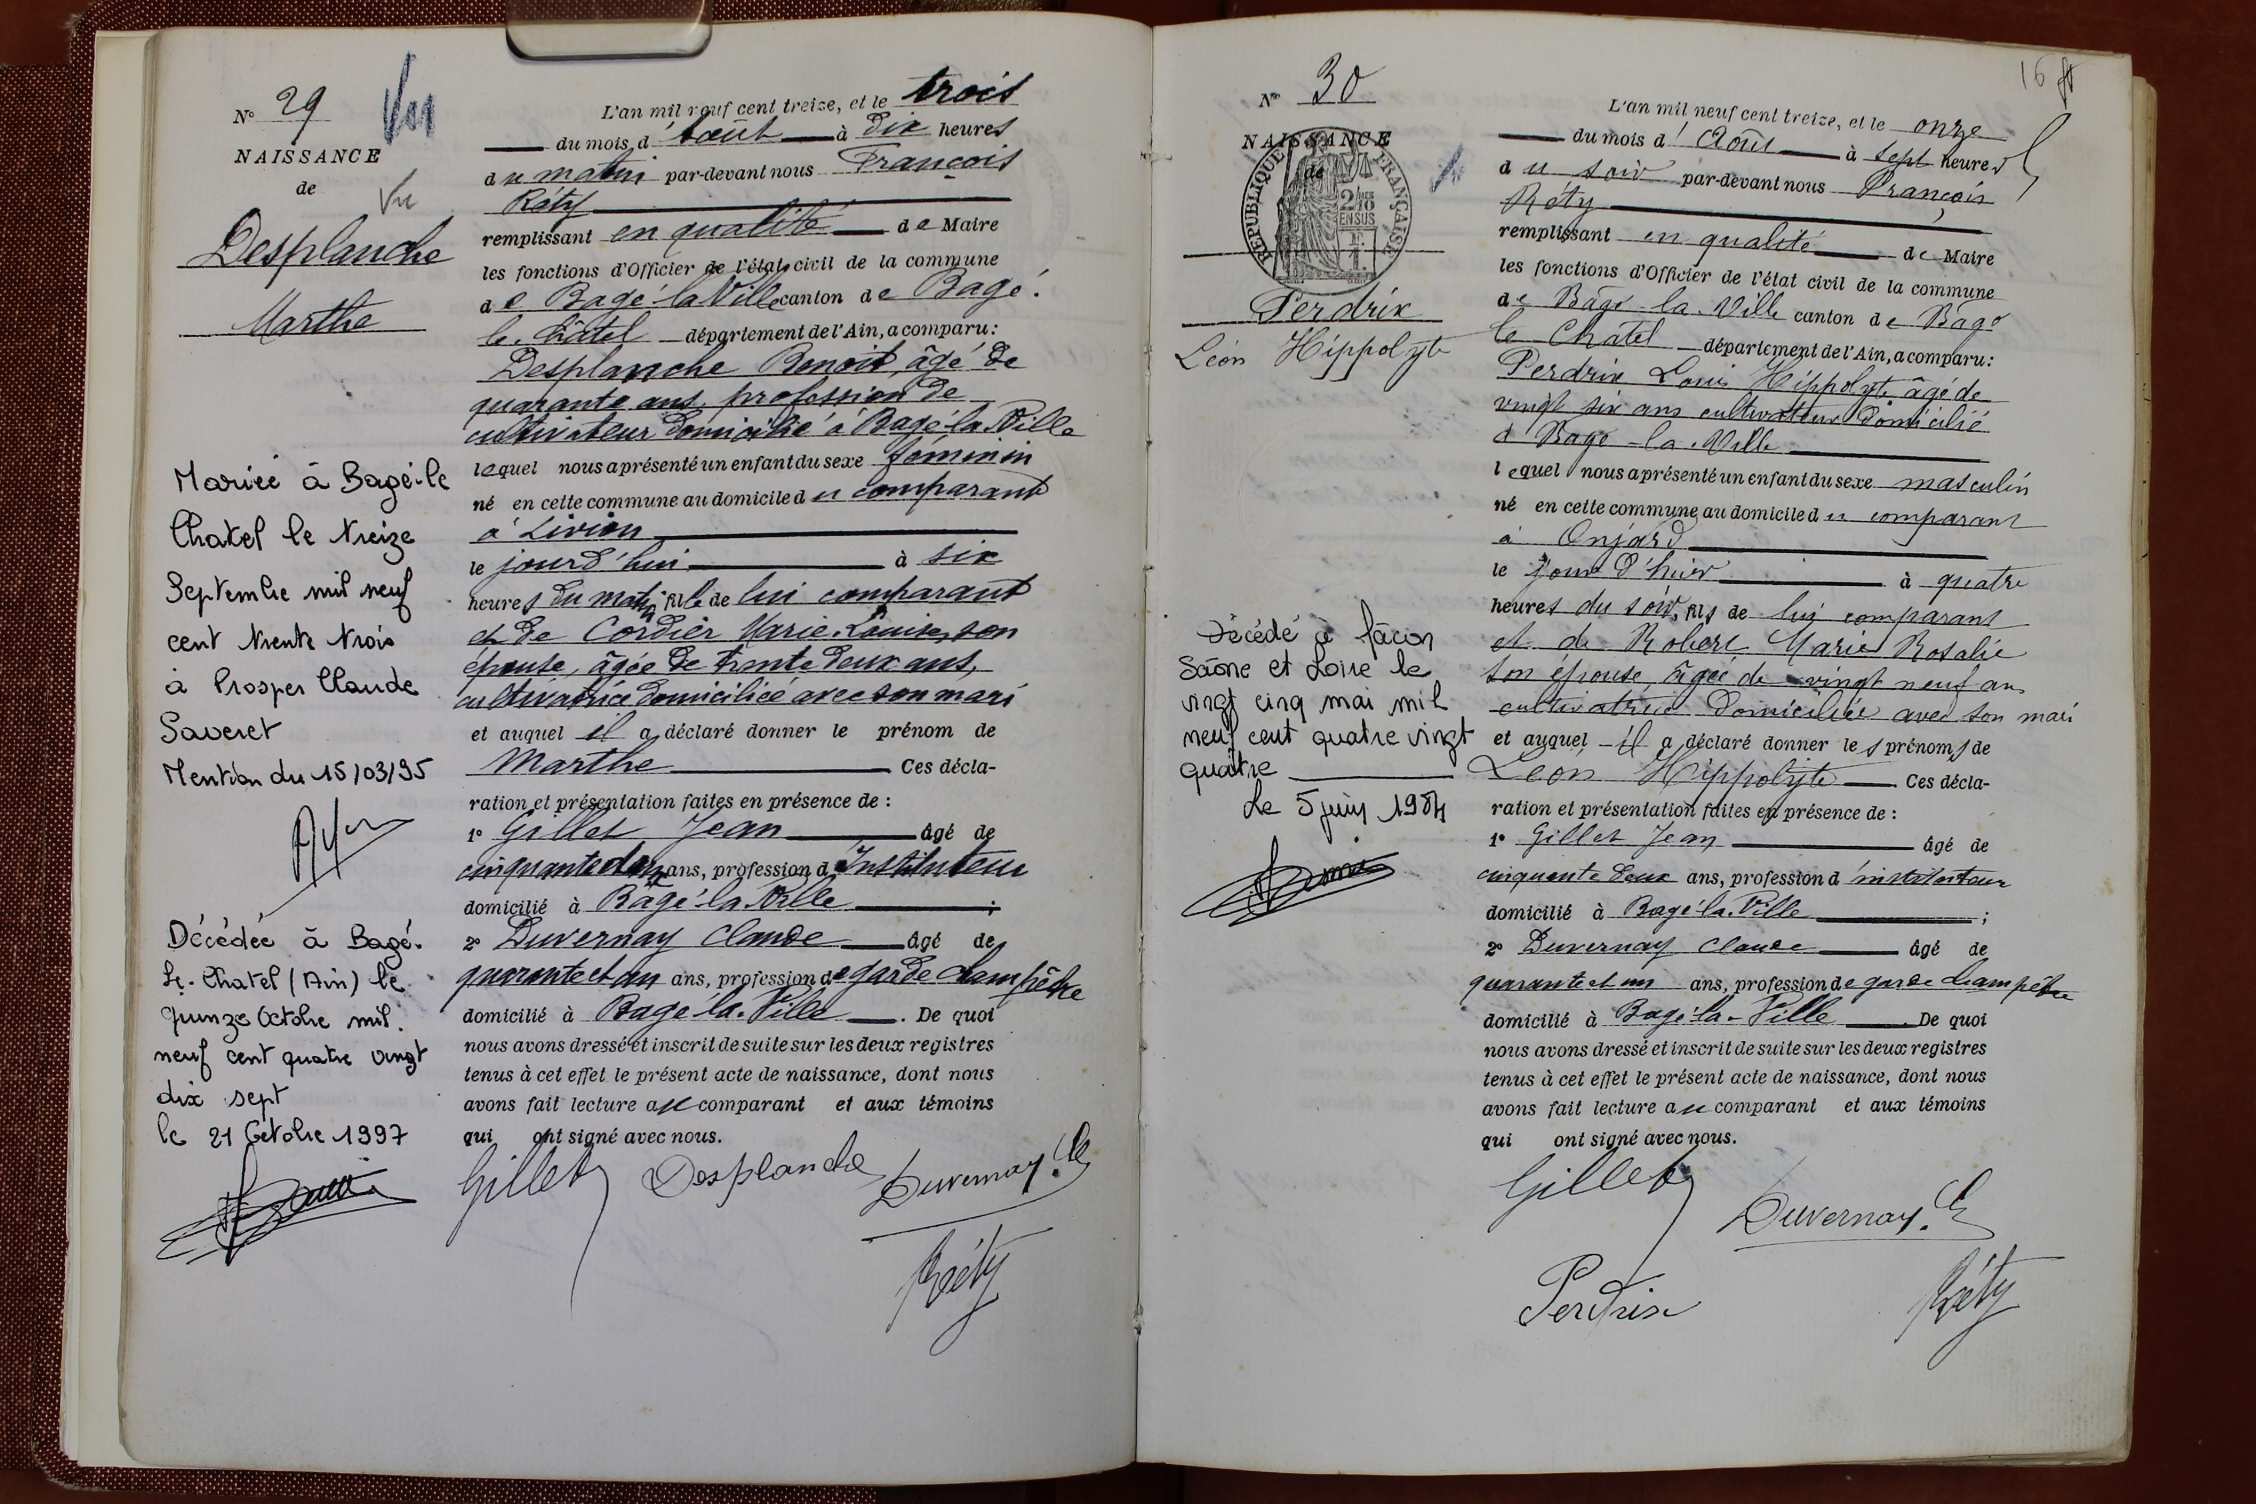 N° 29
Vu
NAISSANCE
de
Vu
Desplanche
Marthe
Mariée à Bagé-le
Chatel le treize
Septembre mil neuf
cent trente trois
à Prosper Claude
Saveret
Mention du 15/03/95
Décédée à Bagé-
Le-Chatel (Ain) le
quinze Octobre mil
neuf cent quatre vingt
dix sept
le 21 Octobre 1997
L'an mil neuf cent treize, et le trois
du mois d'août à dix heures
du matin par-devant nous François
Réty
remplissant en qualité de Maire
les fonctions d'Officier de l'état civil de la commune
de Bagé-la-Ville canton de Bagé-
le-Châtel département de l'Ain, a comparu:
Desplanche Benoit, âgé de
quarante ans, profession de
cultivateur domicilié à Bagé-la-Ville
lequel nous a présenté un enfant du sexe féminin
né en cette commune au domicile du comparant
à Livion
le jourd'hui à six
heures du matin, fille de lui comparant
et de Cordier Marie-Louise, son
épouse, âgée de trente deux ans,
cultivatrice domiciliée avec son mari
et auquel il a déclaré donner le prénom de
Marthe Ces décla-
ration et présentation faites en présence de :
1° Gillet Jean âgé de
cinquante deux ans, profession d'Instituteur
domicilié à Bagé-la-Ville ;
2° Duvernay Claude âgé de
quarante et un ans, profession de garde champêtre
domicilié à Bagé-la-Ville. De quoi
nous avons dressé et inscrit de suite sur les deux registres
tenus à cet effet le présent acte de naissance, dont nous
avons fait lecture au comparant et aux témoins
qui ont signé avec nous.
Gillet Desplanche Duvernay. Cl
Réty
16
N° 30
NAISSANCE
de
REPUBLIQUE FRANÇAISE
2/10
EN SUS
Perdrix
Léon Hippolyte
Décédé à Mâcon
Saône et Loire le
vingt cinq mai mil
neuf cent quatre vingt
quatre
Le 5 juin 1984
L'an mil neuf cent treize, et le onze
du mois d'Août à sept heures
du soir par-devant nous François
Réty
remplissant en qualité de Maire
les fonctions d'Officier de l'état civil de la commune
de Bagé-la-Ville canton de Bagé
le Châtel département de l'Ain, a comparu:
Perdrix Louis Hippolyte, âgé de
vingt six ans cultivateur domicilié
à Bagé-la-Ville
lequel nous a présenté un enfant du sexe masculin
né en cette commune au domicile du comparant
à Onjard
le jour d'hier à quatre
heures du soir, fils de lui comparant
et de Robert Marie Rosalie
son épouse, âgée de vingt neuf ans
cultivatrice domiciliée avec son mari
et auquel il a déclaré donner les prénoms de
Léon Hippolyte Ces décla-
ration et présentation faites en présence de :
1° Gillet Jean âgé de
cinquante deux ans, profession d'instituteur
domicilié à Bagé-la-Ville ;
2° Duvernay Claude âgé de
quarante et un ans, profession de garde champêtre
domicilié à Bagé-la-Ville De quoi
nous avons dressé et inscrit de suite sur les deux registres
tenus à cet effet le présent acte de naissance, dont nous
avons fait lecture au comparant et aux témoins
qui ont signé avec nous.
Gillet
Duvernay. Cl
Perdrix Réty